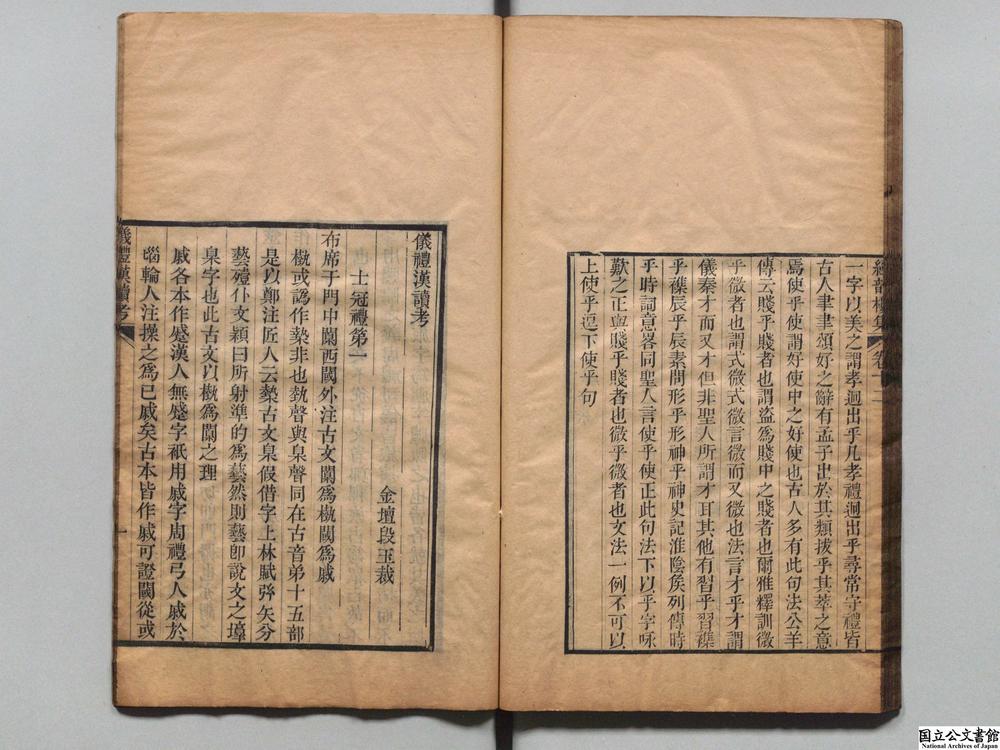 經韵樓集 卷十二
一字以美之謂孝迥出乎凡孝禮迥出乎尋常守禮皆
古人聿聿頌好之辭有孟子出於其類拔乎其萃之意
焉使乎使謂好使中之好使也古人多有此句法公羊
傳云賤乎賤者也謂盜爲賤中之賤者也爾雅釋訓微
乎微者也謂式微式微言微而又微也法言才乎才謂
儀秦才而又才但非聖人所謂才耳其他有習乎習襍
乎襍辰乎辰素問形乎形神乎神史記淮陰矦列傳時
乎時詞意畧同聖人言使乎使正此句法下以乎字咏
歎之正與賤乎賤者也微乎微者也文法一例不可以
上使乎逗下使乎句
儀禮漢讀考
金壇段玉裁
士冠禮第一
布席于門中闑西閾外注古文闑爲槷閾爲蹙
槷或譌作㙯非也埶聲與臬聲同在古音弟十五部
是以鄭注匠人云槷古文臬假借字上林賦弦矢分
藝殪仆文穎曰所射準的爲藝然則藝卽說文之壔
臬字也此古文以槷爲闑之理
戚各本作蹙漢人無蹙字祇用戚字周禮弓人戚於
㓸輪人注操之爲已戚矣古本皆作戚可證閾從或
儀禮漢讀考
一
国立公文書館
National Archives of Japan